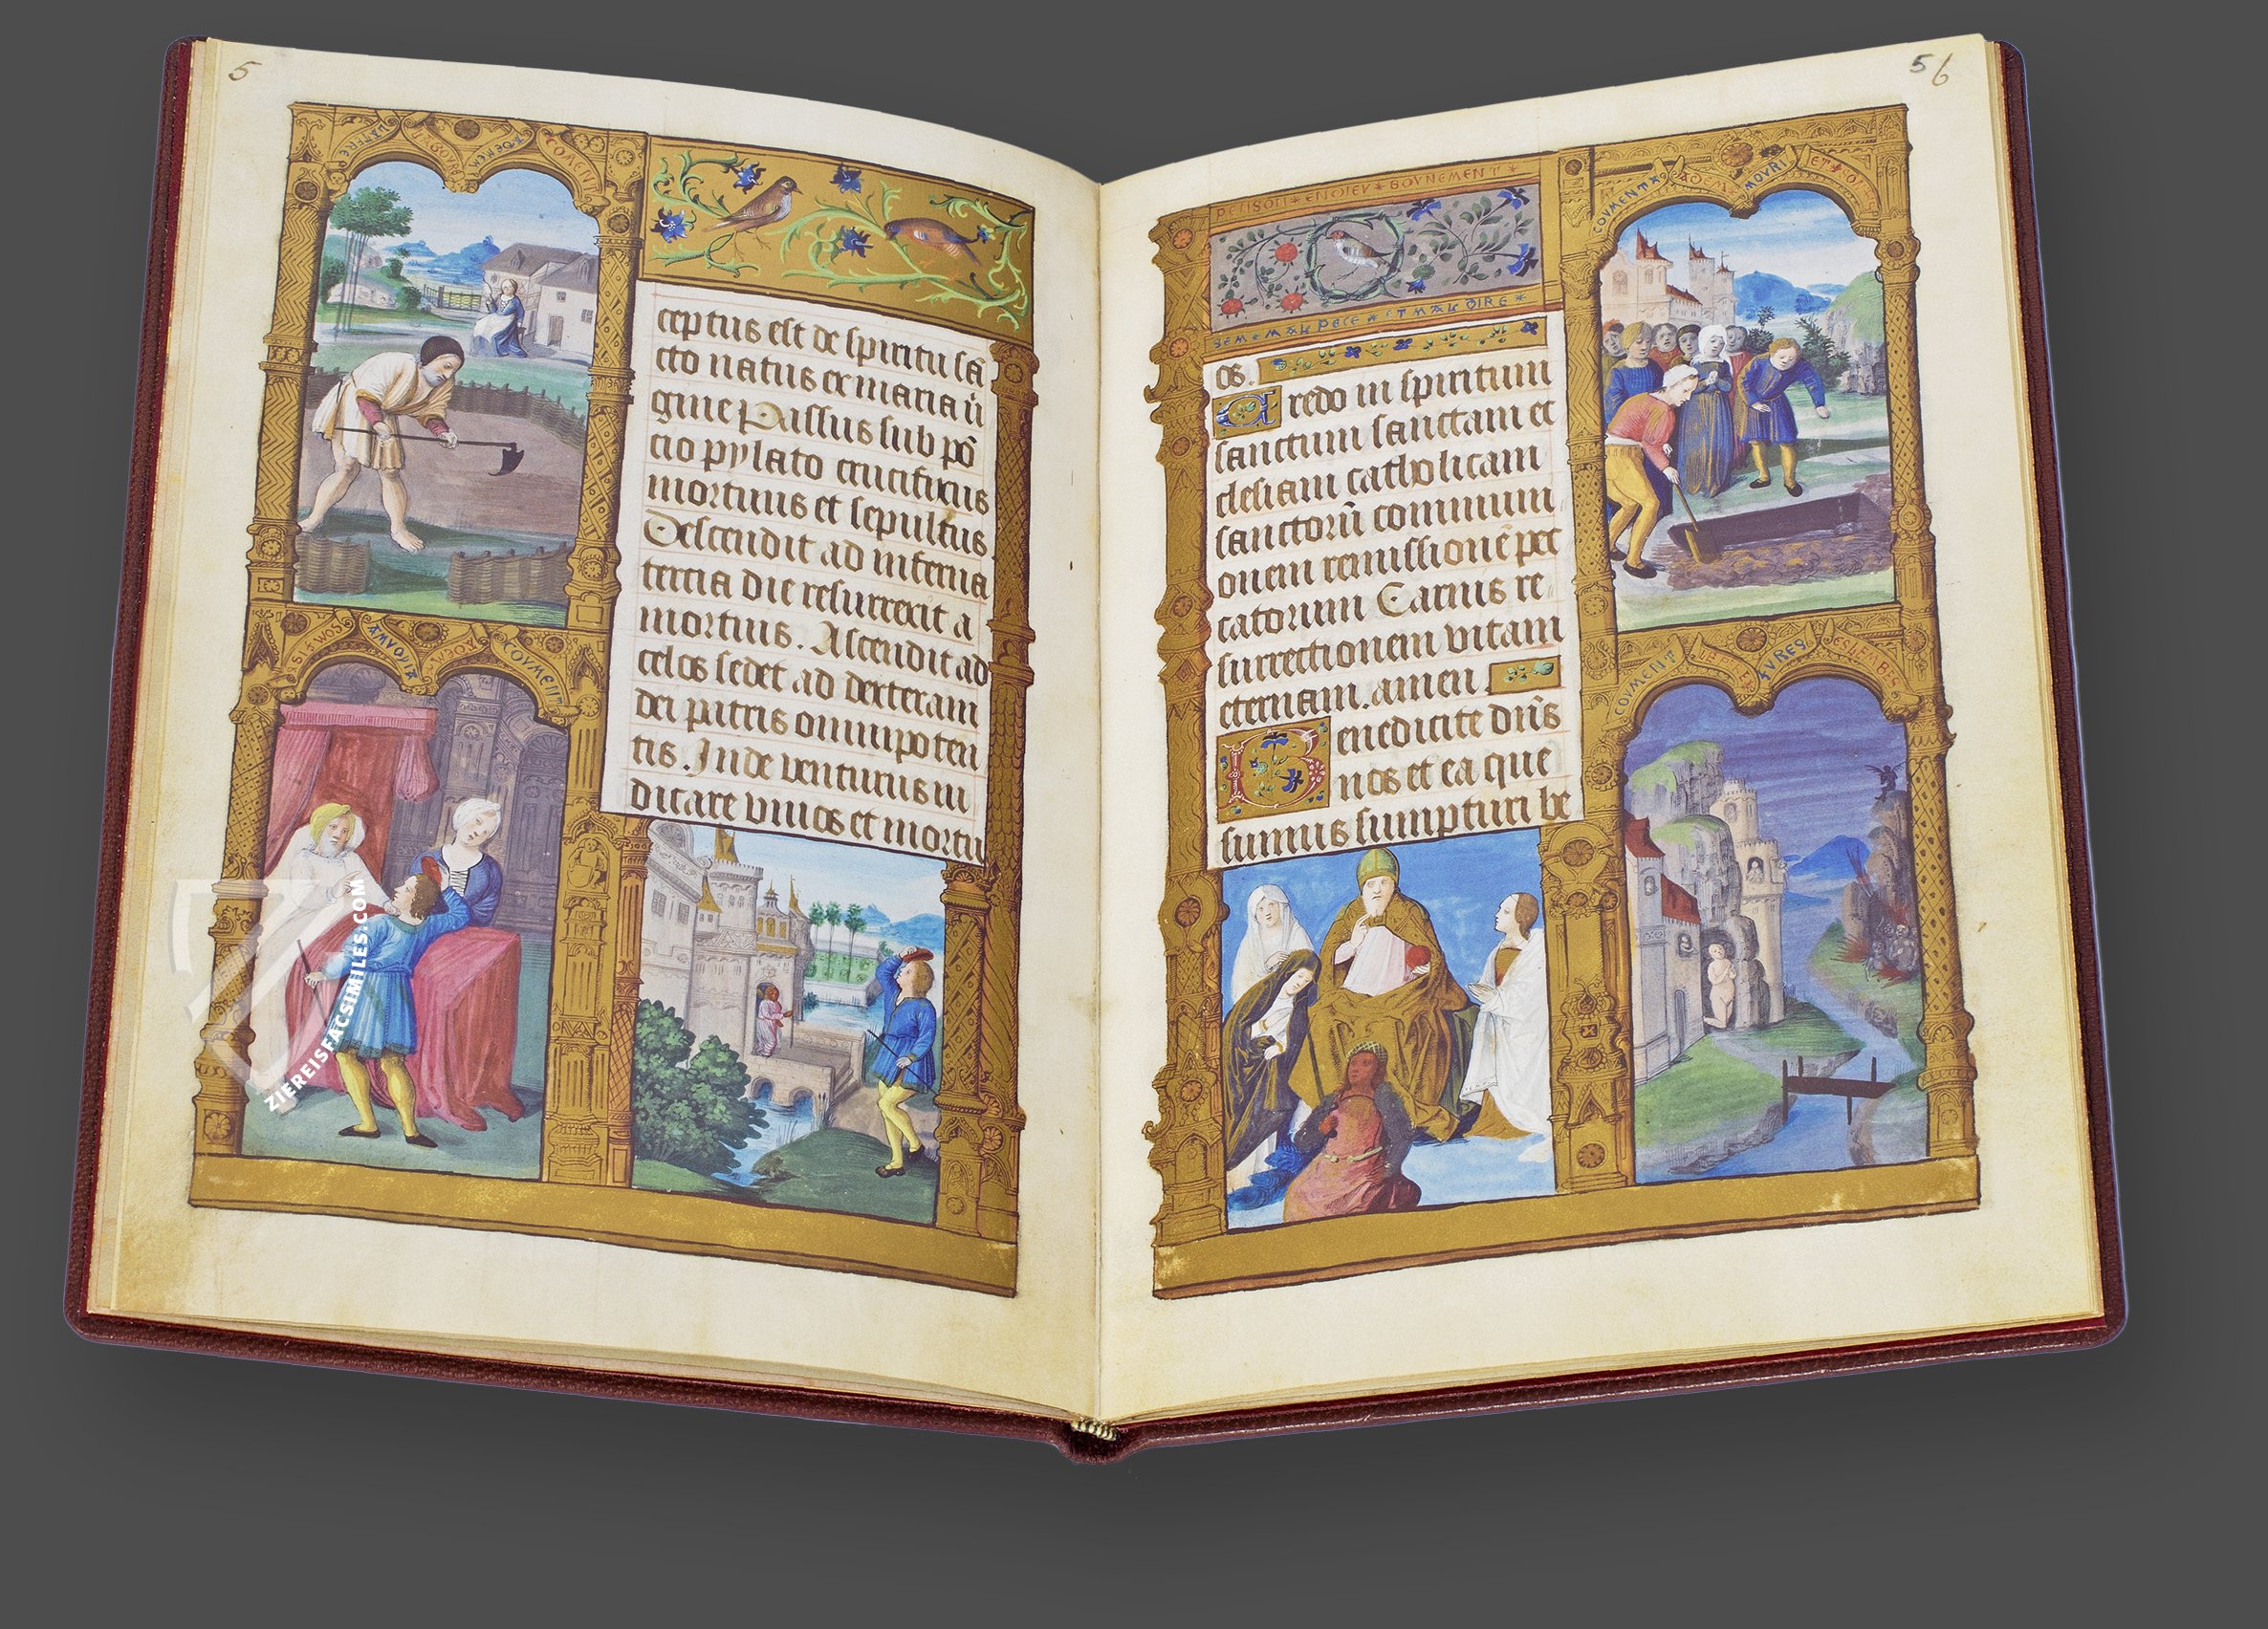 5
ceptus est de spiritu sā
cto natus ex maria ū
gine Passus sub pō
cio pylato crucifixus
mortuus et sepultus
Descendit ad inferna
tercia die resurrexit a
mortuis. Ascendit ad
celos sedet ad dexteram
dei patris omnipoten
tis. Inde venturus iu
dicare vivos et mortu
ZIEREISFACSIMILES.COM
56
BOVNEMENT
ET MAL DIRE
os.
Credo in spiritum
sanctum sanctam et
clesiam catholicam
sanctorū commun
onem remissionē pec
catorum Carnis re
surrectionem vitam
eternam. amen
Benedicite dn̄s
nos et ea que
sumus sumpturi be